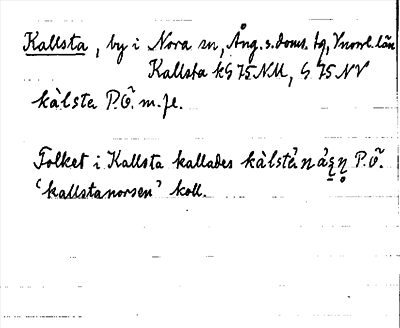 Kallsta, by i Nora sn, Ång. s. doms. tg, Vnorrl. län
Kallsta kG 75 NM, G 75 NV
kàlsta P.Ö. m. fl.
Folket i Kallsta kallades P.Ö.
‘kallstanorsen’ koll.